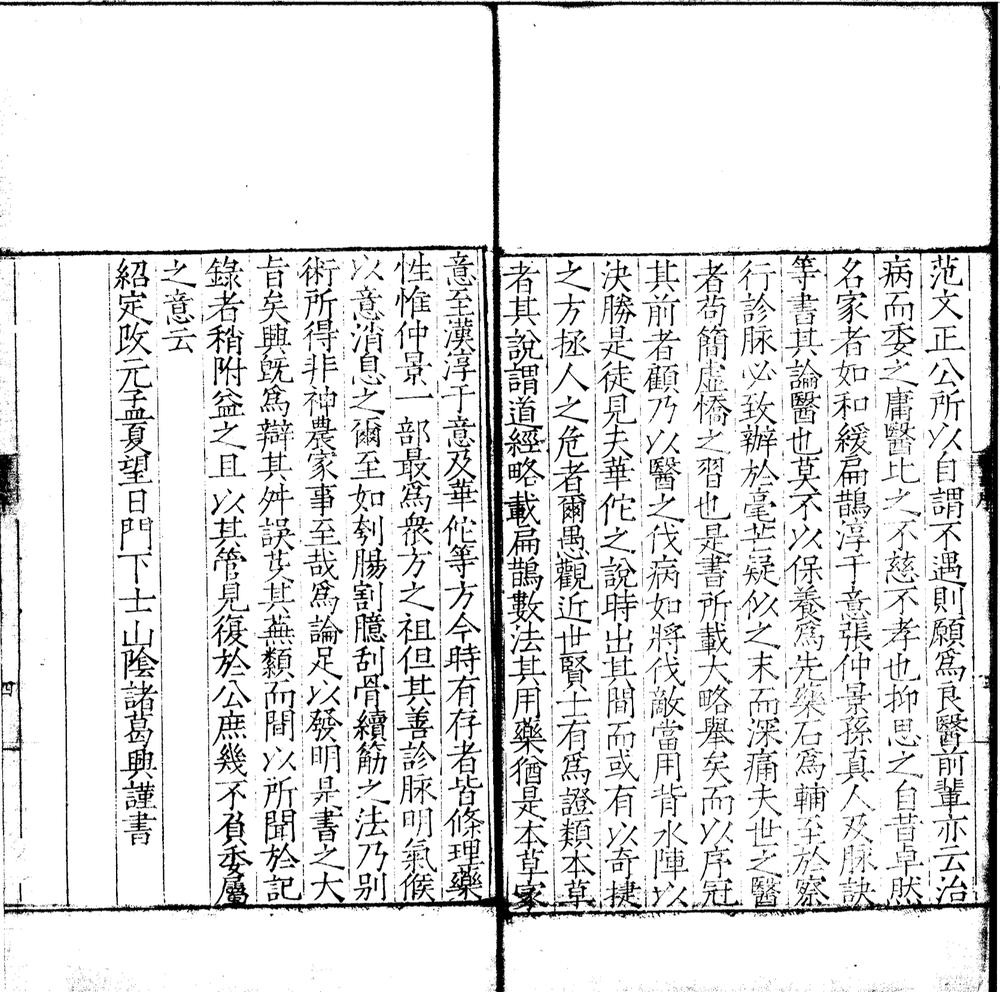 范文正公所以自謂不遇則願為良醫前輩亦云治
病而委之庸醫比之不慈不孝也抑思之自昔卓然
名家者如和緩扁鵲淳于意張仲景孫真人及脉訣
等書其論醫也莫不以保養為先藥石為輔至於察
行診脉必致辦於毫芒疑似之末而深痛夫世之醫
者苟簡虛憍之習也是書所載大略舉矣而以序冠
其前者顧乃以醫之伐病如將伐敵當用背水陣以
決勝是徒見夫華佗之說時出其間而或有以奇捷
之方拯人之危者爾愚觀近世賢士有為證類本草
者其說謂道經略載扁鵲數法其用藥猶是本草家
意至漢淳于意及華佗等方今時有存者皆條理藥
性惟仲景一部最為衆方之祖但其善診脉明氣候
以意消息之爾至如刳腸割臆刮骨續筋之法乃別
術所得非神農家事至哉為論足以發明是書之大
旨矣興既為辯其舛誤芟其蕪纇而間以所聞於記
錄者稍附益之且以其管見復於公庶幾不負委屬
之意云
紹定改元孟夏望日門下士山陰諸葛興謹書
序
三
四